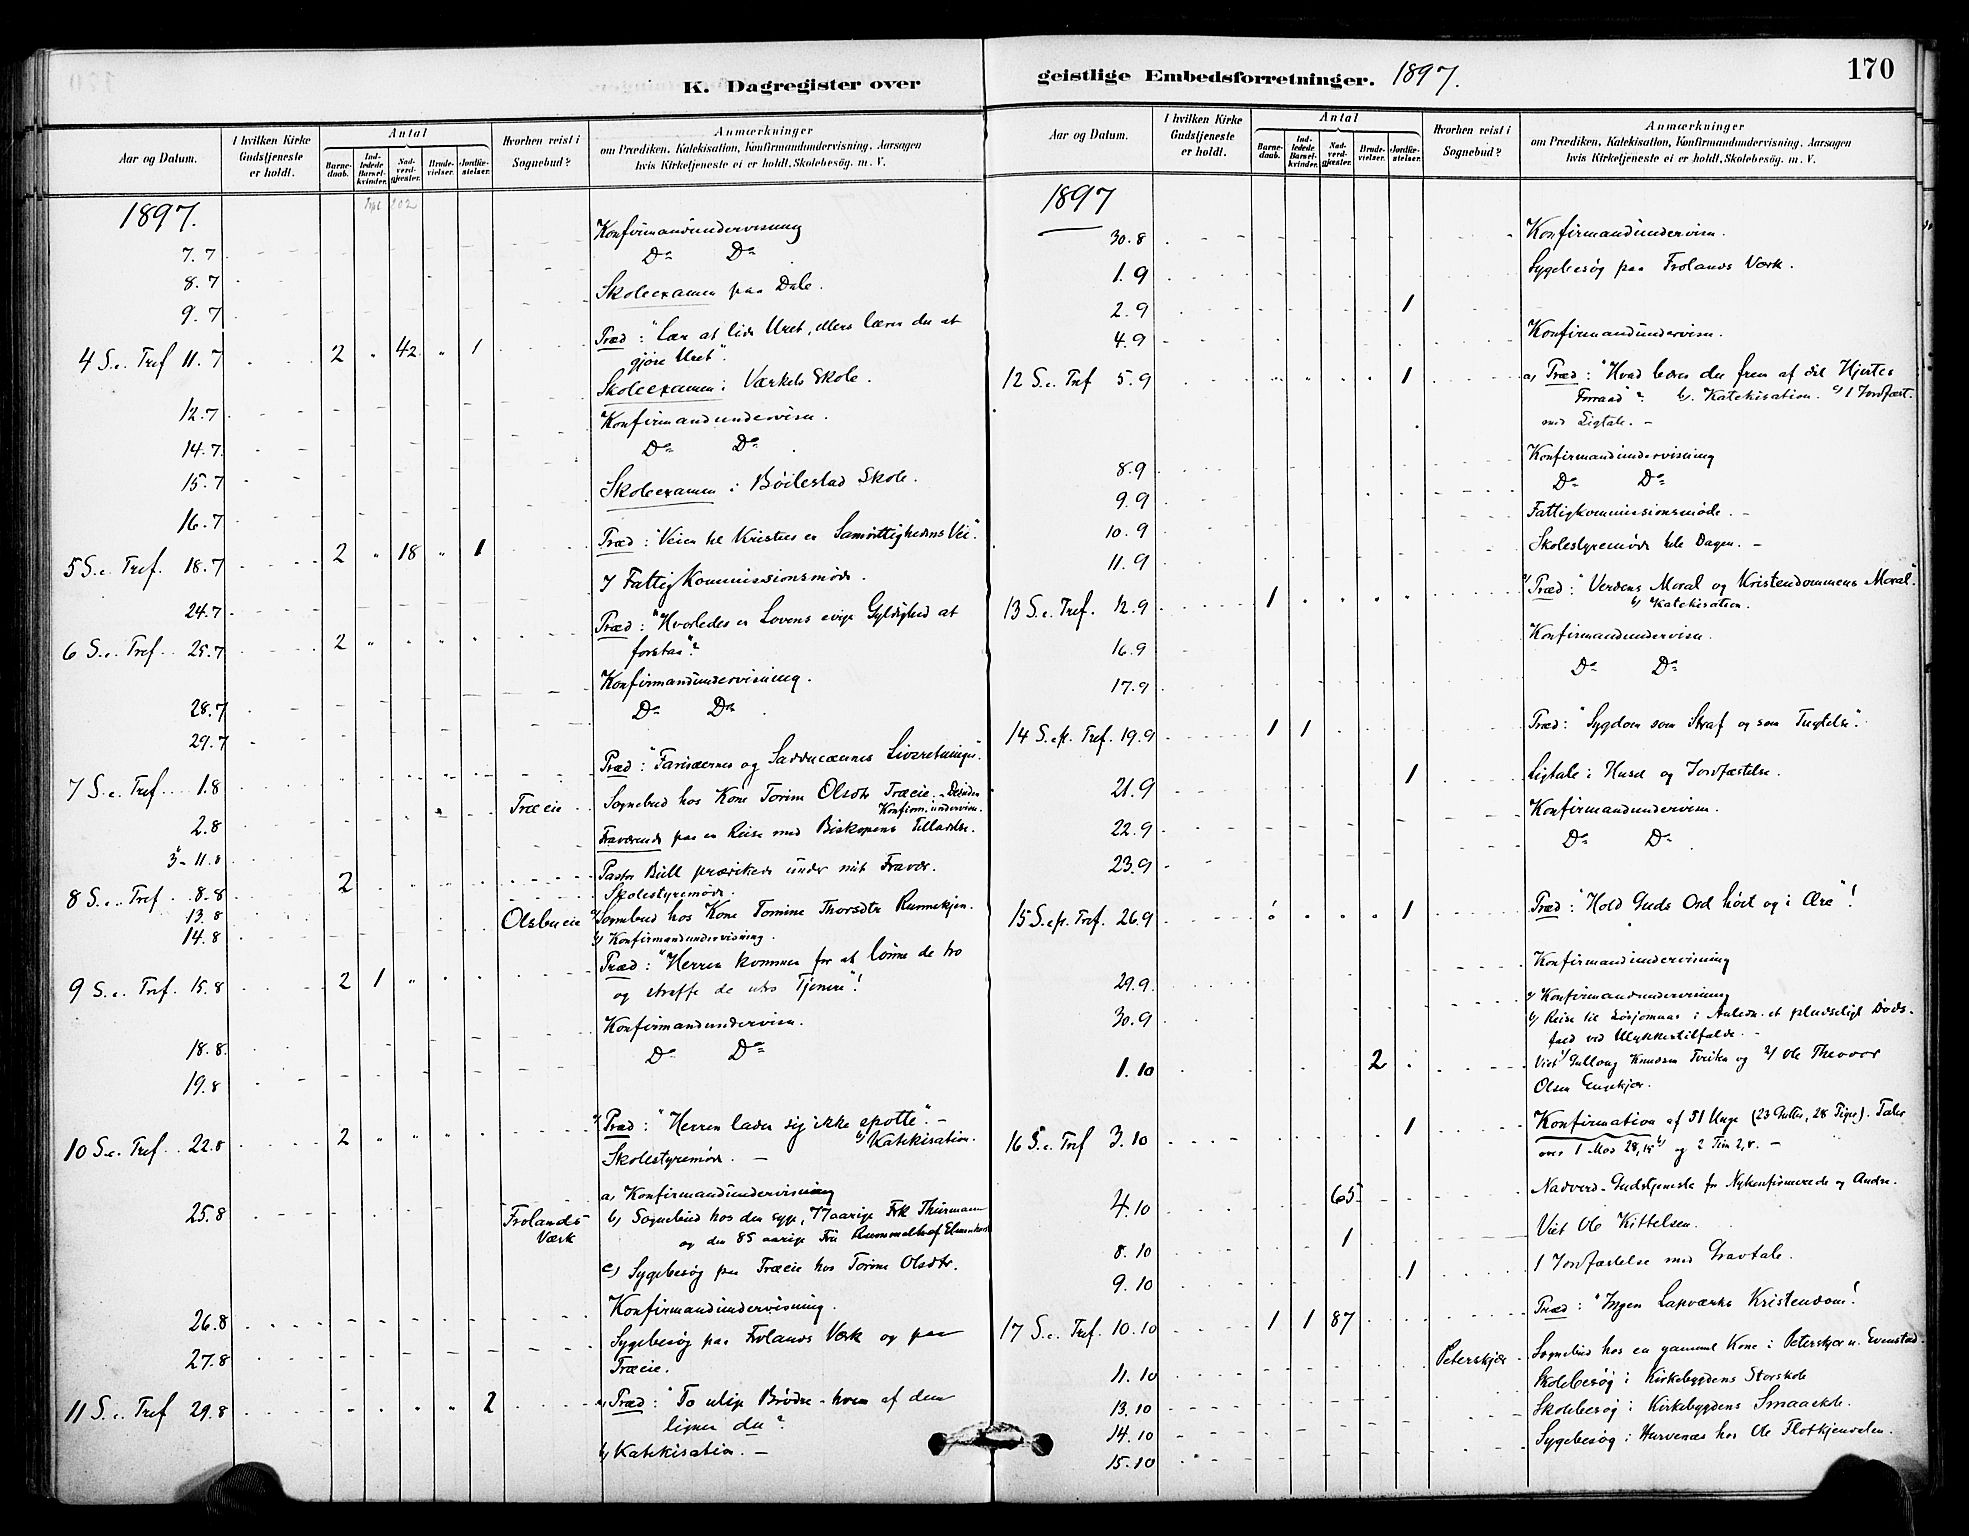 K. Dagregister over
Aar og Datum.
I hvilken Kirke Gudstjeneste er holdt.
Antal
Barne-daab.
Ind-ledede Barsel-kvinder.
Nad-verd-gjester.
Brude-vielser.
Jordfæ-stelser.
Hvorhen reist i Sognebud?
Anmærkninger
om Prædiken, Katekisation, Konfirmandundervisning, Aarsagen
hvis Kirketjeneste ei er holdt, Skolebesøg. m. V.
1897.
7.7 Konfirmandundervisning
8.7 Do Do
9.7 Skoleexamen paa Dale.
4 S. e. Tref 11.7 2 " 42 " 1 Præd: "Lær at lide Uret, ellers lærer du at
gjøre Uret".
12.7 Skoleexamen i Værkets Skole.
14.7 Konfirmandundervisn.
15.7 Do Do
16.7 Skoleexamen i Bøilestad Skole.
5 S. e. Tref. 18.7 2 " 18 " 1 Præd: "Veien til Kristus er Samvittighedens Vei".
24.7 Fattigkommissionsmøde.
6 S. e. Tref. 25.7 2 " " " " Præd: "Hvorledes er Lovens evige Gyldighed at
forstaa"?
28.7 Konfirmandundervisning.
29.7 Do Do
7 S. e. Tref. 1.8 Præd: "Farisæernes og Sadducæernes Livsretninger".
2.8 Træeie Sognebud hos Kone Torine Olsdtr Træeie. Desuden
Konfirm.undervisn.
3-11.8 Fraværende paa en Reise med Biskopens Tilladelse.
8 S. e. Tref 8.8 2 Pastor Bull prædikede under mit Fravær.
13.8 Skolestyremøde.
14.8 Olsbueie a) Sognebud hos Kone Tomine Thorsdtr
b) Konfirmandundervisning.
9 S. e. Tref. 15.8 2 1 " " " Præd: "Herren kommer for at lønne de tro
og straffe de utro Tjenere"!
18.8 Konfirmandundervisn.
19.8 Do Do
10 S. e. Tref. 22.8 2 " " " " a) Præd: "Herren lader sig ikke spotte". —
b) Katekisation.
Skolestyremøde. —
25.8 Frolands Værk a) Konfirmandundervisning
b) Sognebud hos den syge, 77 aarige Frk Thürmann
og den 85 aarige Fru
c) Sygebesøg paa Træeie hos Torine Olsdtr.
26.8 Konfirmandundervisning.
27.8 Sygebesøg paa Frolands Værk og paa
Træeie.
11 S. e. Tref 29.8 " " " " 2 a) Præd: "To ulige Brødre - hvem af dem
ligner du"?
b) Katekisation. —
geistlige Embedsforretninger. 1897.
170
Aar og Datum.
I hvilken Kirke Gudstjeneste er holdt.
Antal
Barne-daab.
Ind-ledede Barsel-kvinder.
Nad-verd-gjester.
Brude-vielser.
Jordfæ-stelser.
Hvorhen reist i Sognebud?
Anmærkninger
om Prædiken, Katekisation, Konfirmandundervisning, Aarsagen
hvis Kirketjeneste ei er holdt, Skolebesøg. m. V.
1897
30.8 Konfirmandundervisn.
1.9 Sygebesøg paa Frolands Værk.
2.9 1
4.9 Konfirmandundervisn.
12 S. e. Tref 5.9 " " " " 1 a) Præd: "Hvad bærer du frem af dit Hjertes
Forraad"? b) Katekisation. c) 1 Jordfæst.
med Ligtale. —
8.9 Konfirmandundervisning
9.9 Do Do
10.9 Fattigkommissionsmøde. —
11.9 Skolestyremøde hele Dagen. —
13 S. e. Tref. 12.9 1 " " " " a) Præd: "Verdens Moral og Kristendommens Moral".
b) Katekisation.
16.9 Konfirmandundervisn.
17.9 Do Do
14 S. eft. Tref. 19.9 1 1 Præd: "Sygdom som Straf og som Tugtelse".
21.9 1 Ligtale i Huset og Jordfæstelse.
22.9 Konfirmandundervisn.
23.9 Do Do
15 S. eft. Tref. 26.9 1 Præd: "Hold Guds Ord høit og i Ære"!
29.9 Konfirmandundervisning
30.9 a) Konfirmandundervisning
b) Reise til i Anledn. et pludseligt Døds-
fald ved Ulykkestilfælde. —
1.10 2 Viet 1) Knudsen og 2) Ole Theodor
Olsen Engekjær.
16 S. e. Tref 3.10 1 Konfirmation af 51 Unge (23 Gutter, 28 Piger). Taler
over 1 Mos 28,15 og 2 Tim 2,8. —
4.10 65 Nadverd-Gudstjeneste for Nykonfirmerede og Andre.
8.10 1 Viet Ole Kittelsen.
9.10 1 1 Jordfæstelse med Gravtale.
17 S. e. Tref. 10.10 1 1 87 Præd: "Ingen Lapværks Kristendom"!
11.10 Peterskjær Sognebud hos en gammel Kone i Peterskjær u. Evenstad.
13.10 Skolebesøg i Kirkebygdens Storskole
14.10 Skolebesøg i Kirkebygdens Smaaskole.
15.10 Sygebesøg i Hurvenæs hos Ole